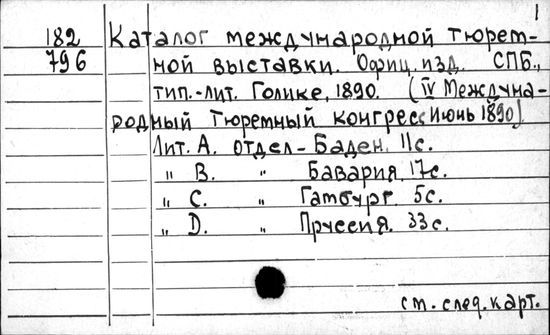 1
182 Каталог международной тюрем-
796 ной выставки. Офиц. изд. СПБ.,
тип.-лит. Голике, 1890. (IV Междуна-
родный Тюремный конгресс Июнь 1890).
Лит. А. отдел - Баден. 11с.
„ В. „ Бавария. 17с.
„ С. „ Гамбург. 5с.
„ D. „ Пруссия. 33с.
см. след. карт.